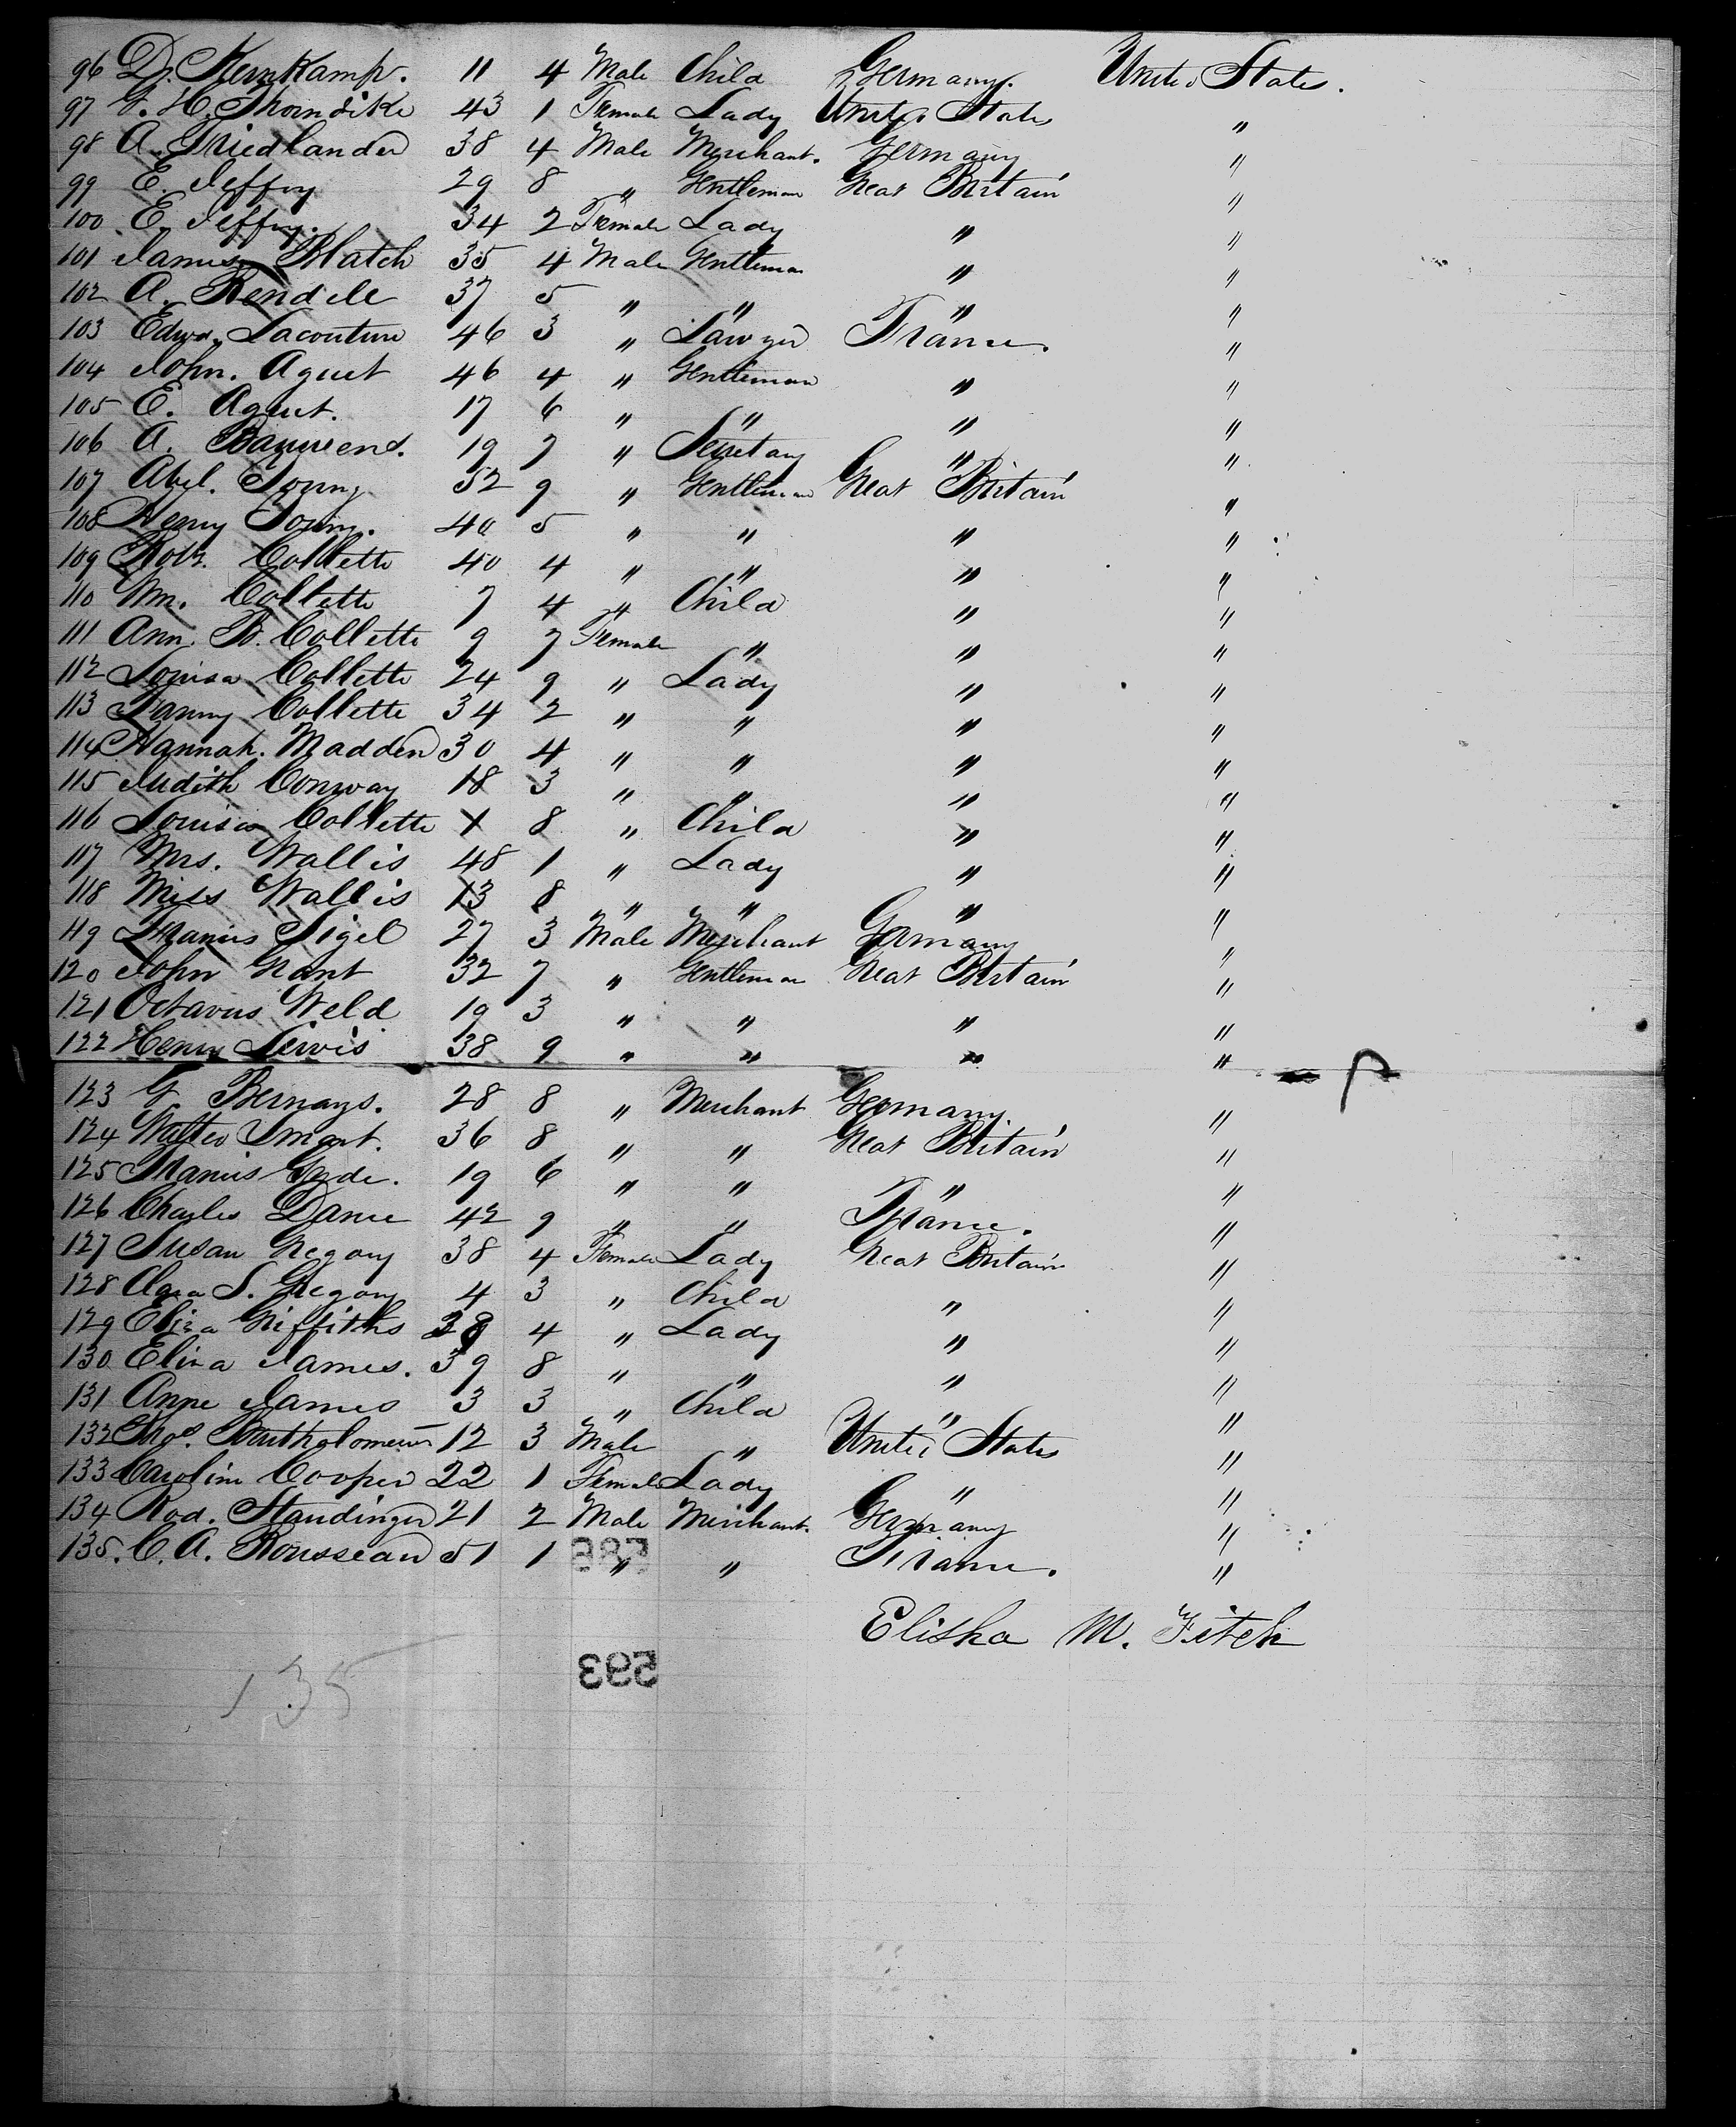 96 D. Kernkamp. 11 4 Male Child Germany. United States.
97 G. H. Thorndike 43 1 Female Lady United States "
98 A. Friedlander 38 4 Male Merchant. Germany "
99 E. Jeffry 29 8 " Gentleman Great Britain "
100 E. Jeffry. 34 2 Female Lady " "
101 James Blatch 35 4 Male Gentleman " "
102 A. Rendele 37 5 " " " "
103 Edwd. Lacouture 46 3 " Lawyer France. "
104 John. Aguet 46 4 " Gentleman " "
105 E. Aguet. 17 6 " " " "
106 A. Bauwens. 19 7 " Secretary " "
107 Abel. Young 52 9 " Gentleman Great Britain "
108 Henry Young. 40 5 " " " "
109 Robt. Collette 40 4 " " " "
110 Wm. Collette 7 4 " Child " "
111 Ann. B. Collette 9 7 Female " " "
112 Louisa Collette 24 9 " Lady " "
113 Fanny Collette 34 2 " " " "
114 Hannah. Madden 30 4 " " " "
115 Judith Conway 18 3 " " " "
116 Louisa Collette 1 8 " Child " "
117 Mrs. Wallis 48 1 " Lady " "
118 Miss Wallis 13 8 " " " "
119 Francis Sigel 27 3 Male Merchant Germany "
120 John Grant 32 7 " Gentleman Great Britain "
121 Octavus Weld 19 3 " " " "
122 Henry Lewis 38 9 " " " "
123 G. Bernays. 28 8 " Merchant Germany "
124 Walter Smart. 36 8 " " Great Britain "
125 Francis Gyde. 19 6 " " " "
126 Charles Dance 42 9 " " France. "
127 Susan Gregory 38 4 Female Lady Great Britain "
128 Clara S. Gregory 4 3 " Child " "
129 Eliza Griffiths 28 4 " Lady " "
130 Eliza James. 39 8 " " " "
131 Anne James 3 3 " Child " "
132 Thos. Bartholomew 12 3 Male " United States "
133 Caroline Cooper 22 1 Female Lady " "
134 Rod. Staudinger 21 2 Male Merchant. Germany "
135. C. A. Rousseau 51 1 " " France. "
Elisha M. Fitch
283
135